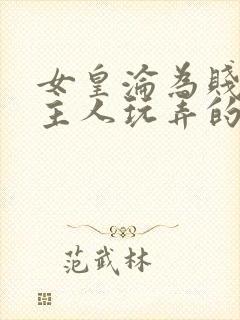 女皇淪為賤
主人玩弄的
范武林